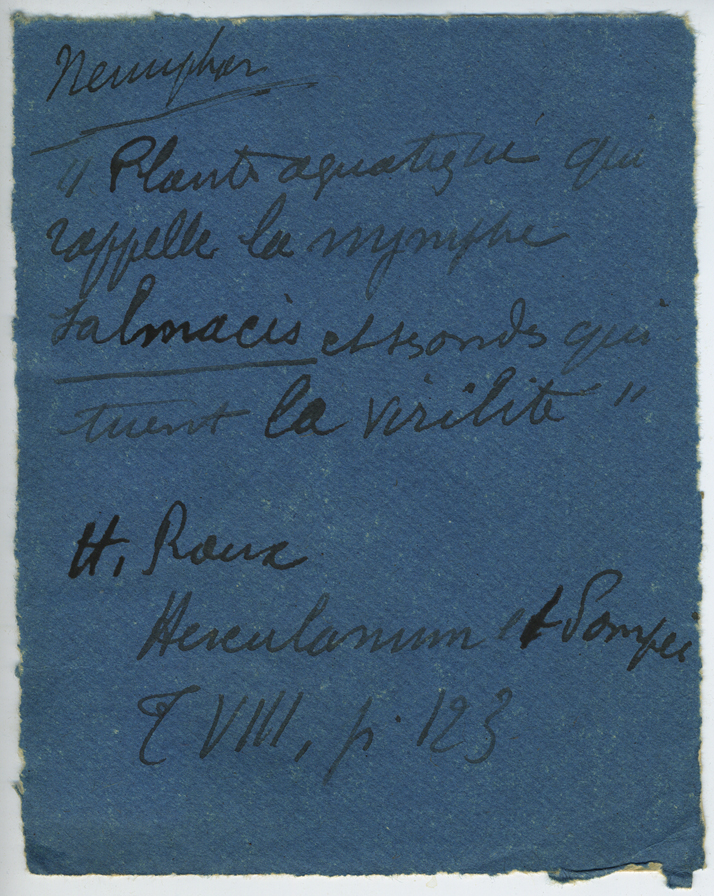 Nenuphar
" Plante aquatique qui
rappelle la nymphe
Salmacis et ses ondes qui
tuent la virilité "
H. Roux
Herculanum et Pompei
T VIII, p. 123.